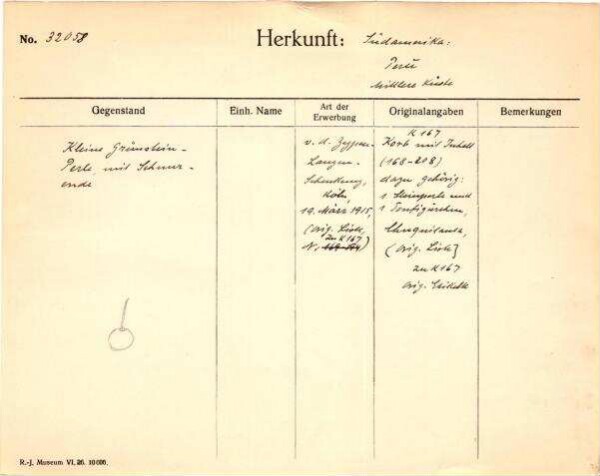 No. 32058
Herkunft: Südamerika:
Peru
Mittlere Küste
Gegenstand
Einh. Name
Art der
Erwerbung
Originalangaben
Bemerkungen
Kleine Grünstein-
Perle mit Schnur-
ende
v. d. Zypen-
Langen-
Schenkung,
Köln,
19. März 1915,
(Orig. Liste,
zu K167)
N. 168-
K 167
Korb mit Inhalt
(168-218)
dazu gehörig:
1 Steinperle und
1 Tonfigürchen,
Chuquitanta,
(Orig. Liste)
zu K167
Orig. Etikette
R.-J. Museum VI. 26. 10000.